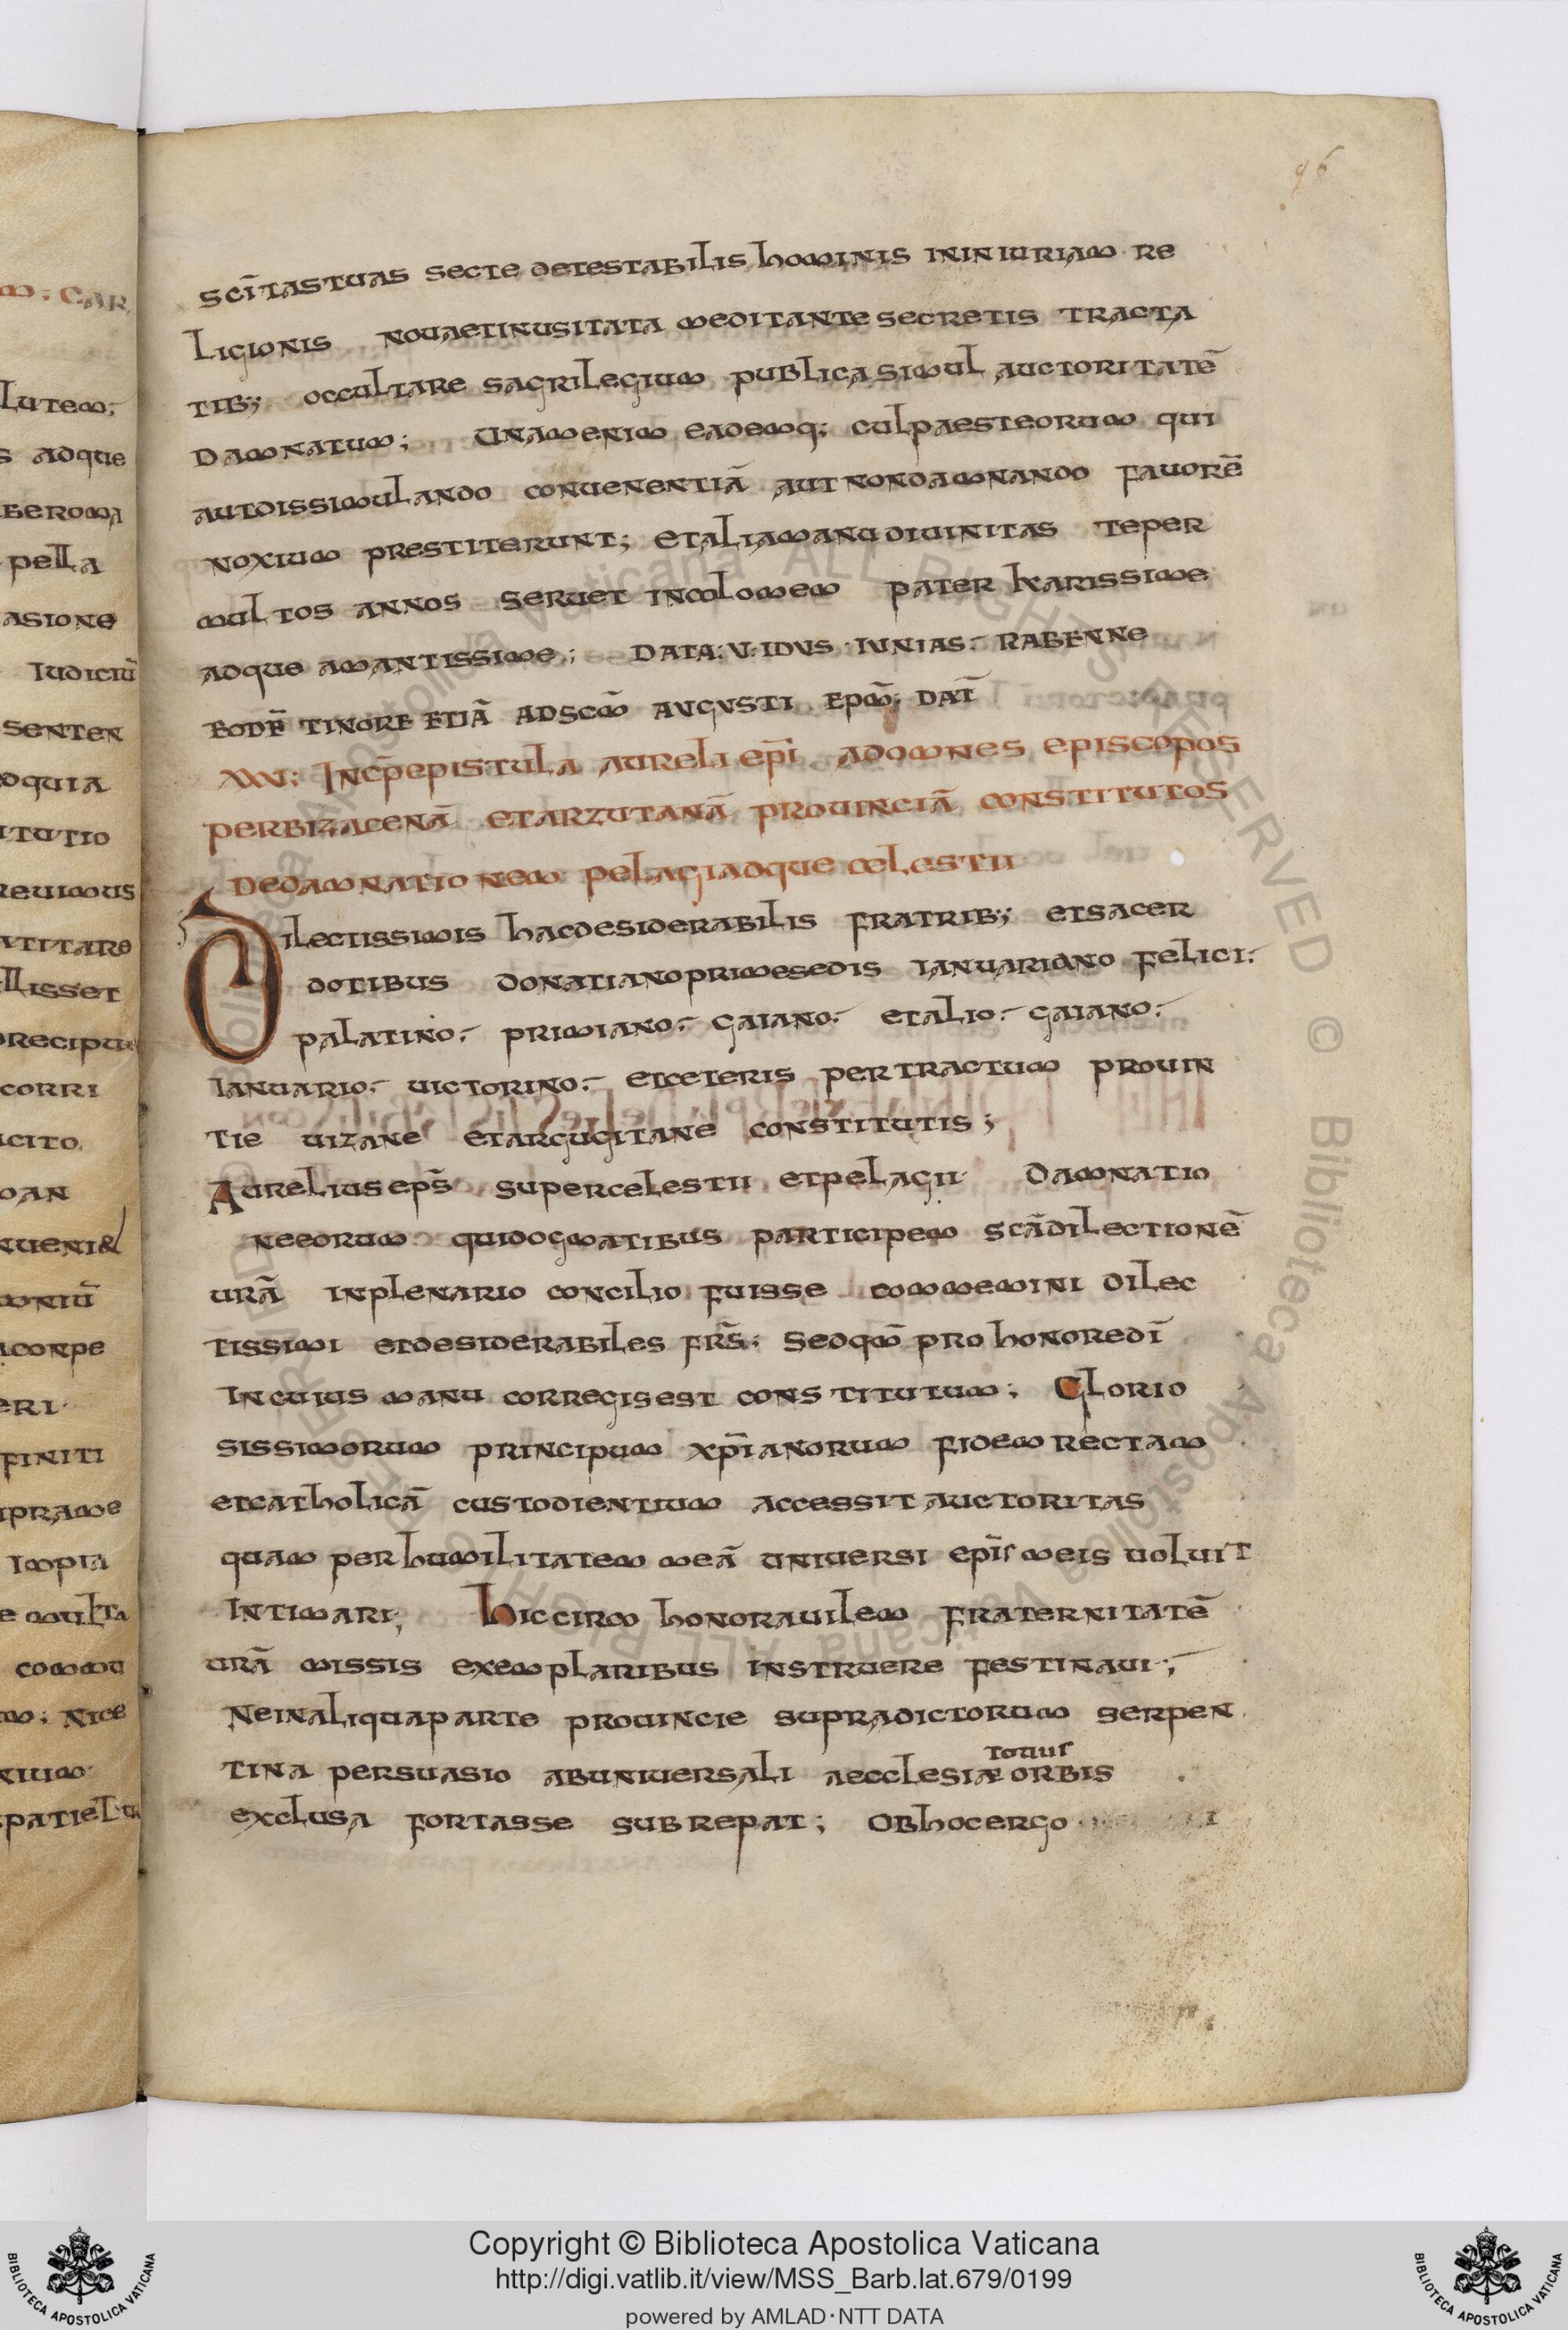 96
scĩtas tuas secte detestabilis hominis in iniuriam re
ligionis nova et inusitata meditante secretis tracta
tib;; occultare sacrilegium publica simul auctoritatē
damnatum; Una menim eademq; culpa est eorum qui
aut dissimulando conuenentiā aut non damnando fauorē
noxium prestiterunt; et alia manu diuinitas te per
multos annos seruet incolomem pater karissime
adque amantissime; Data: V: idus · iunias · Rabenne
eodē tinore etiā ad scm̄ augusti epm̄; dat̄
XXV: Incp̄ epistula aureli ep̄i ad omnes episcopos
per bizacenā et arzutanā prouinciā constitutos
de damnationem pelagi adque celestii
Dilectissimis hac desiderabilis fratrib;; et sacer
dotibus donatiano prime sedis ianuariano felici:
palatino. primiano. gaiano. et alio. gaiano.
ianuario. uictorino. et ceteris per tractum prouin
tie uizane et argugitane constitutis;
Aurelius ep̄s super celestii et pelagii damnatio
ne eorum qui dogmatibus participem scā dilectionē
urā in plenario concilio fuisse commemini dilec
tissimi et desiderabiles fr̄s; Sed qm̄ pro honore dī
in cuius manu cor regis est constitutum; Glorio
sissimorum principum xp̄ianorum fidem rectam
et catholicā custodientium accessit auctoritas
quam per humilitatem meā uniuersi ep̄is meis uoluit
intimari; hic circo honorauilem fraternitatē
urā missis exemplaribus instruere festinaui;
Ne in aliqua parte prouincie supradictorum serpen
totius
tina persuasio ab uniuersali aecclesiæ orbis
exclusa fortasse subrepat; Ob hoc ergo
Copyright © Biblioteca Apostolica Vaticana
http://digi.vatlib.it/view/MSS_Barb.lat.679/0199
powered by AMLAD·NTT DATA